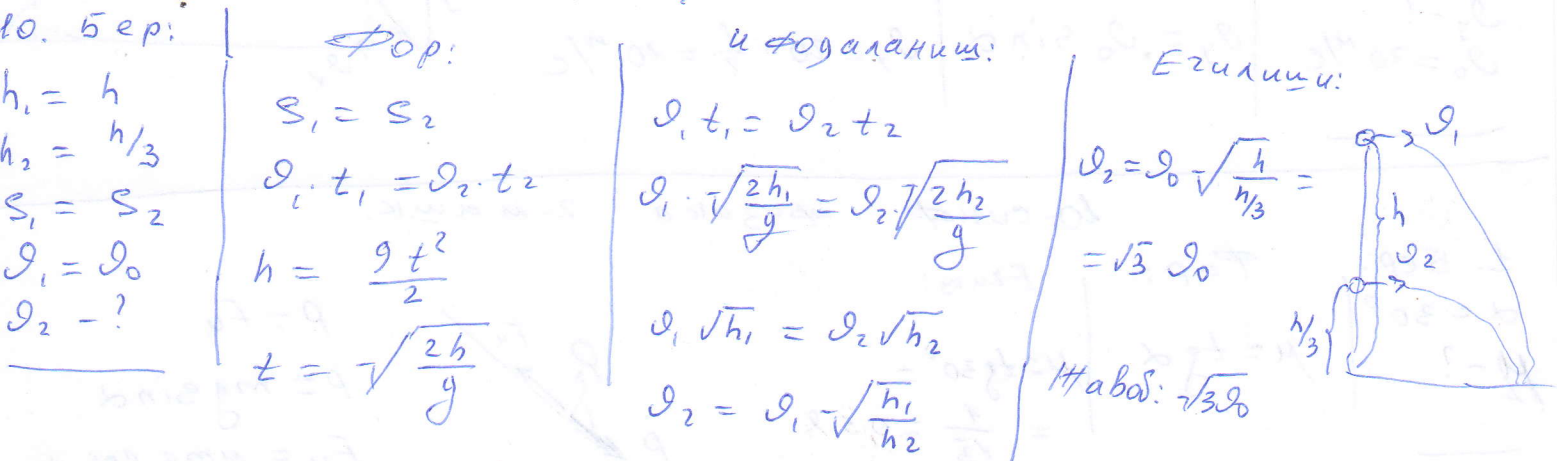 10. Бер:
h₁ = h
h₂ = h/3
S₁ = S₂
ϑ₁ = ϑ₀
ϑ₂ - ?
Фор:
S₁ = S₂
ϑ₁ · t₁ = ϑ₂ · t₂
h = gt²/2
t = √(2h/g)
ифодаланиш:
ϑ₁ t₁ = ϑ₂ t₂
ϑ₁ · √(2h₁/g) = ϑ₂ · √(2h₂/g)
ϑ₁ √h₁ = ϑ₂ √h₂
ϑ₂ = ϑ₁ √(h₁/h₂)
Ечилиши:
ϑ₂ = ϑ₀ √(h/(h/3)) =
= √3 ϑ₀
Жавоб: √3ϑ₀
ϑ₁
h
ϑ₂
h/3